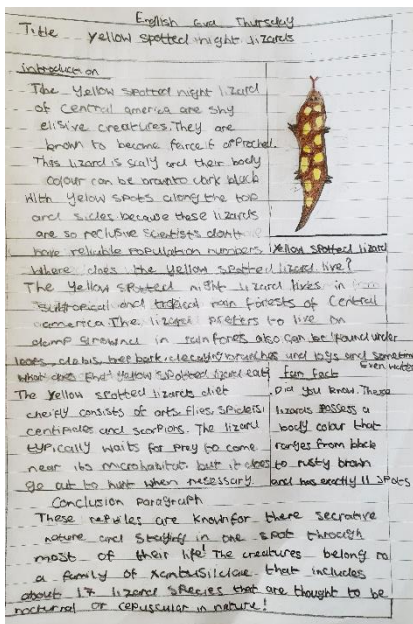 English Eva Thursday
Title yellow spotted night lizards
introduction
The Yellow spotted night lizard
of Central america are shy
elisive creatures. They are
known to become feirce if approched.
This lizard is scaly and their body
colour can be brown to dark black
with yellow spots along the top
and sides because these lizards
are so reclusive scientists don't
have reliable population numbers
yellow spotted lizard
Where does the yellow spotted lizard live?
The Yellow spotted night lizard lives in
subtropical and tropical rain forests of Central
america. The lizard prefers to live on
damp ground in rainforests also can be found under
logs, debris, wet bark, decaying branches and logs and sometim
Even water
what does the yellow spotted lizard eat?
The yellow spotted lizards diet
cheifly consists of ants, flies, spiders,
centipides and scorpions. The lizard
typically waits for prey to come
near its microhabitat. but it does
go out to hunt when necessary.
fun fact
Did you know. These
lizards possess a
body colour that
ranges from black
to rusty brown
and has exactly 11 spots
Conclusion paragraph
These reptiles are known for there secrative
nature and staying in one spot through
most of their life! The creatures belong to
a family of Xantusilidae that includes
about 17 lizard species that are thought to be
noctural or cepuscular in nature!